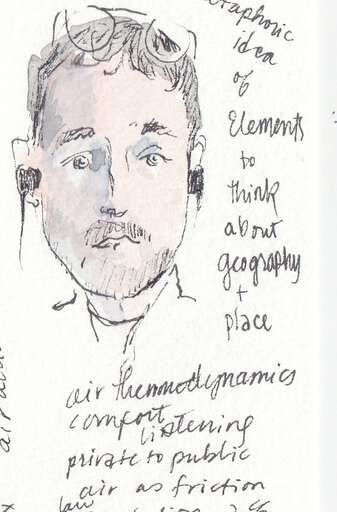 idea
of
Elements
to
think
about
geography
+
place
air thermodynamics
comfort
listening
private to public
air as friction
law